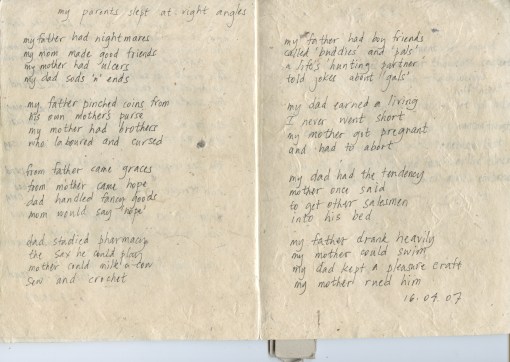 my parents slept at right angles
my father had nightmares
my mom made good friends
my mother had ulcers
my dad sods 'n' ends
my father pinched coins from
his own mother's purse
my mother had brothers
who laboured and cursed
from father came graces
from mother came hope
dad handled fancy goods
mom would say 'nope'
dad studied pharmacy
the sax he could play
mother could milk a cow
sow and crochet
my father had boy friends
called 'buddies' and 'pals'
a life's 'hunting partner'
told jokes about 'gals'
my dad earned a living
I never went short
my mother got pregnant
and had to abort
my dad had the tendency
mother once said
to get other salesmen
into his bed
my father drank heavily
my mother could swim
my dad kept a pleasure craft
my mother rued him
16.04.07